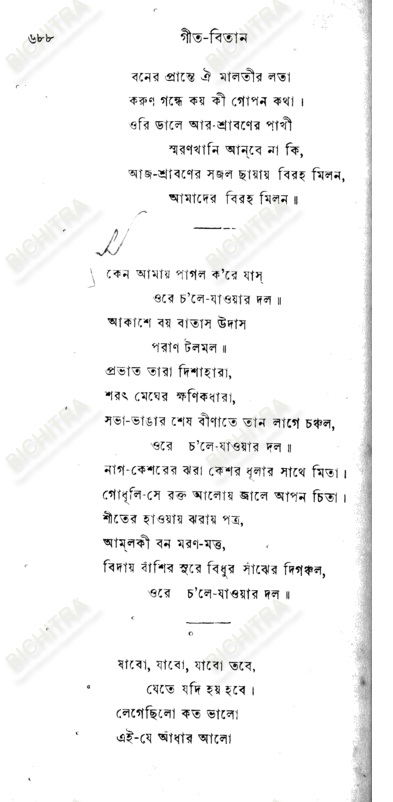 ৬৮৮ গীত-বিতান
বনের প্রান্তে ঐ মালতীর লতা
করুণ গন্ধে কয় কী গোপন কথা ।
ওরি ডালে আর-শ্রাবণের পাখী
স্মরণখানি আন্‌বে না কি,
আজ-শ্রাবণের সজল ছায়ায় বিরহ মিলন,
আমাদের বিরহ মিলন ॥
কেন আমায় পাগল ক'রে যাস্
ওরে চ'লে-যাওয়ার দল ॥
আকাশে বয় বাতাস উদাস
পরাণ টলমল ॥
প্রভাত তারা দিশাহারা,
শরৎ মেঘের ক্ষণিকধারা,
সভা-ভাঙার শেষ বীণাতে তান লাগে চঞ্চল,
ওরে চ'লে-যাওয়ার দল ॥
নাগ-কেশরের ঝরা কেশর ধূলার সাথে মিতা ।
গোধূলি-সে রক্ত আলোয় জালে আপন চিতা ।
শীতের হাওয়ায় ঝরায় পত্র,
আম্‌লকী বন মরণ-মত্ত,
বিদায় বাঁশির সুরে বিধুর সাঁঝের দিগঞ্চল,
ওরে চ'লে-যাওয়ার দল ॥
যাবো, যাবো, যাবো তবে,
যেতে যদি হয় হবে ।
লেগেছিলো কত ভালো
এই-যে আঁধার আলো
BICHITRA